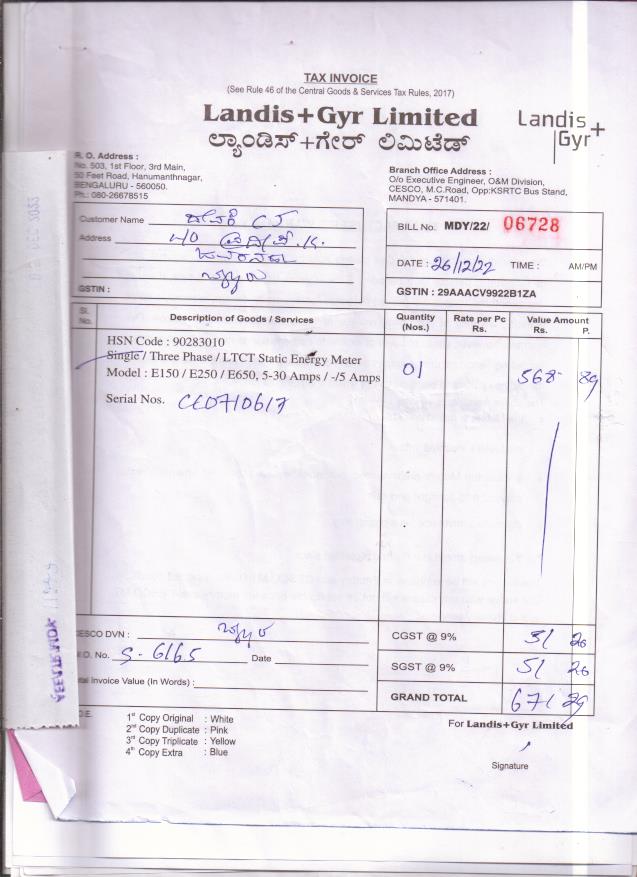 TAX INVOICE
(See Rule 46 of the Central Goods & Services Tax Rules, 2017)
Landis+Gyr Limited
ಲ್ಯಾಂಡಿಸ್+ಗೇರ್ ಲಿಮಿಟೆಡ್
Landis+
Gyr
R. O. Address :
No. 503, 1st Floor, 3rd Main,
50 Feet Road, Hanumanthnagar,
BENGALURU - 560050.
Ph.: 080-26678515
Branch Office Address :
O/o Executive Engineer, O&M Division,
CESCO, M.C.Road, Opp:KSRTC Bus Stand,
MANDYA - 571401.
Customer Name
Address
GSTIN :
BILL No. MDY/22/ 06728
DATE : 26/12/22 TIME : AM/PM
GSTIN : 29AAACV9922B1ZA
Sl. No. Description of Goods / Services Quantity (Nos.) Rate per Pc Rs. Value Amount Rs. P.
HSN Code : 90283010
Single / Three Phase / LTCT Static Energy Meter
Model : E150 / E250 / E650, 5-30 Amps / -/5 Amps 01 568 89
Serial Nos.
CESCO DVN :
CGST @ 9%
S-6165 Date
SGST @ 9% 51 20
Invoice Value (In Words) :
GRAND TOTAL 671 29
1st Copy Original : White
2nd Copy Duplicate : Pink
3rd Copy Triplicate : Yellow
4th Copy Extra : Blue
For Landis+Gyr Limited
Signature